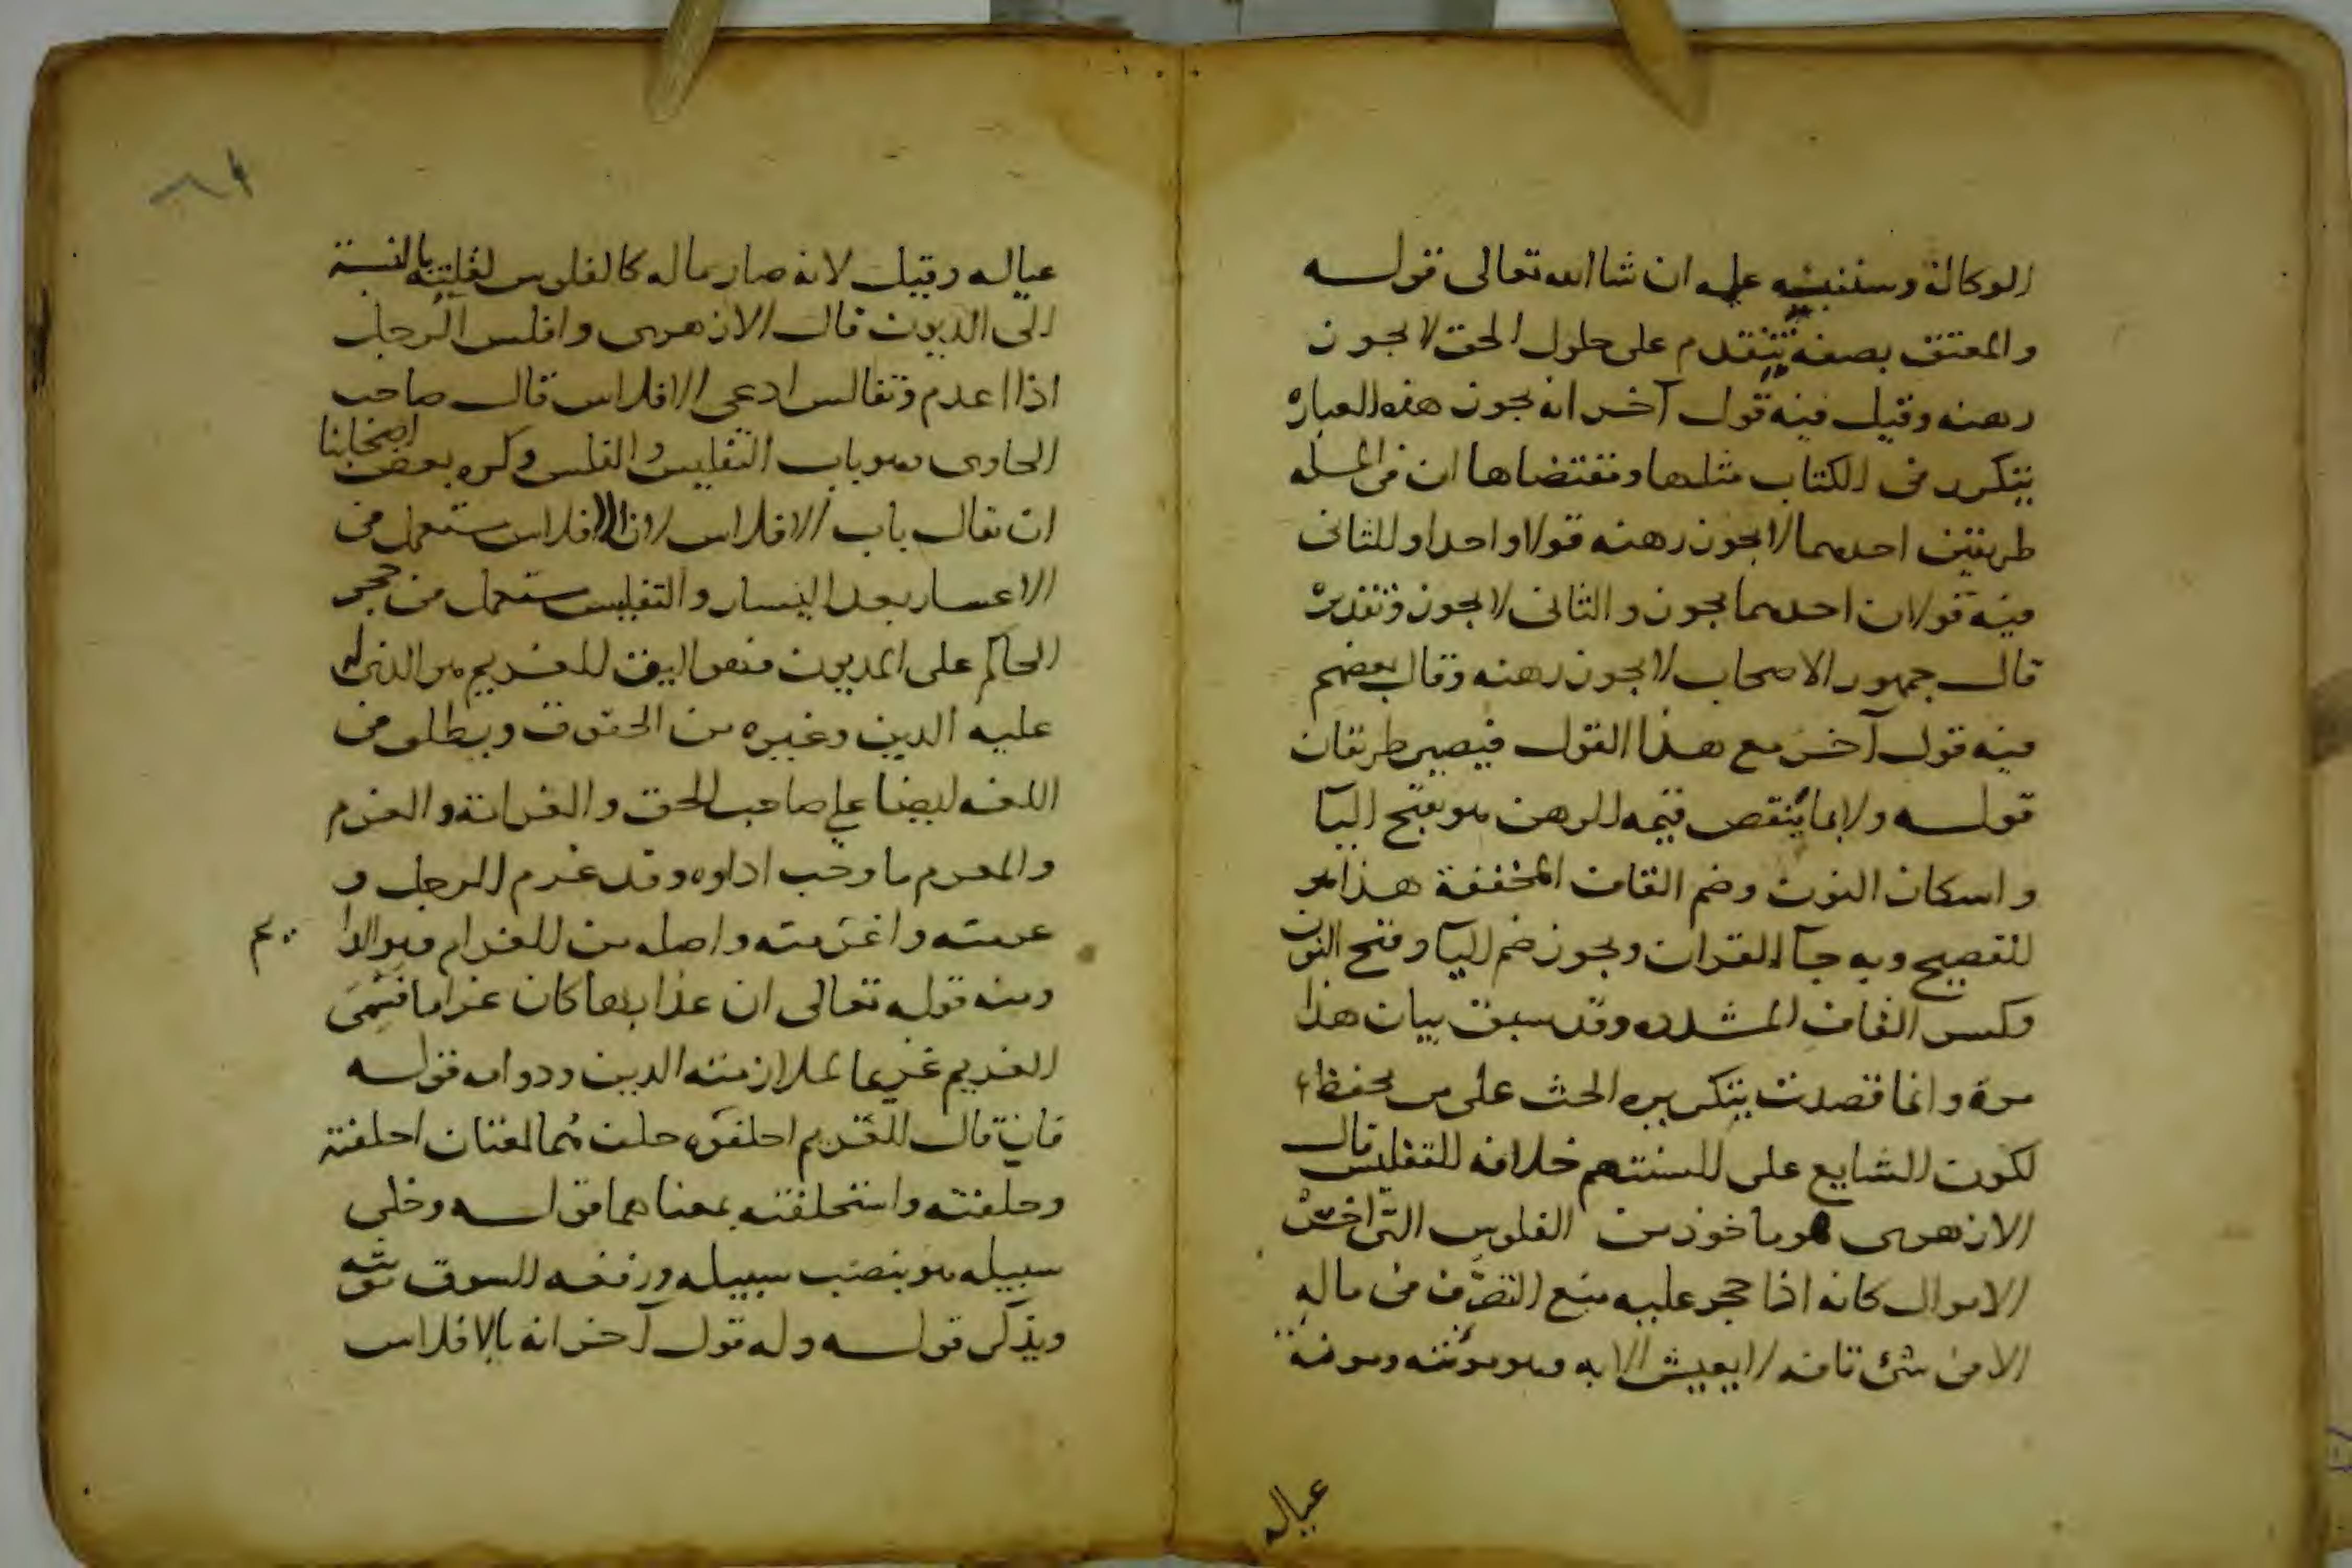 الوكالة وسننبه عليه ان شا الله تعالى قوله
والمعتق بصفة تتقدم على حلول الحق لا يجوز
رهنه وقيل فيه قول آخر انه يجوز هذه العبارة
يتكرر في الكتاب مثلها ومقتضاها ان في المسله
طريقين احدهما لا يجوز رهنه قولا واحدا والثاني
فيه قولان احدهما يجوز والثاني لا يجوز وتقديره
قال جمهور الاصحاب لا يجوز رهنه وقال بعضهم
فيه قول آخر مع هذا القول فيصير طريقان
قوله ولا بما ينقص قيمه الرهن هو بفتح اليآ
واسكان النون وضم القاف المخففة هذا هو
الفصيح وبه جآ القران ويجوز ضم اليآ وفتح النون
وكسر القاف المشدده وقد سبق بيان هذا
مرة وانما قصدت بتكريره الحث على حفظه
لكون الشايع على السنتهم خلافه التفليس قال
الازهرى هو ماخوذ من الفلوس التى اخس
الاموال كانه اذا حجر عليه منع التصرف في ماله
الا في شئ تافه لا يعيش الا به وهو مؤنته ومونة
عياله
عياله وقيل لانه صار ماله كالفلوس لقلته بالنسبة
الى الديون قال الازهرى وافلس الرجل
اذا اعدم وتفالس ادعى الافلاس قال صاحب
الحاوى هو باب التفليس والفلس وكره بعض اصحابنا
ان يقال باب الافلاس لان الافلاس يستعمل في
الاعسار بعد اليسار والتفليس يستعمل في حجر
الحاكم على المديون فهو اليق الغريم هو الذى
عليه الدين وغيره من الحقوق ويطلق في
اللغه ايضا على صاحب الحق والغرامة والغرم
والمغرم ما وجب اداوه وقد غرم الرجل و
غرمته واغرمته واصله من الغرام وهو الدا يم
ومنه قوله تعالى ان عذابها كان غراما فسمى
الغريم غريما لملازمته الدين ودوامه قوله
فان قال الغريم احلفوه حلف هما لغتان احلفته
وحلفته واستحلفته بمعنا هما قوله وخلى
سبيله هو بنصب سبيله ورفعه السوق تونثه
ويذكر قوله وله قول آخر انه بالافلاس